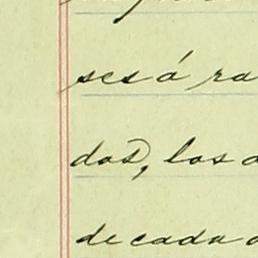 ses á ra
dos, los
de cada